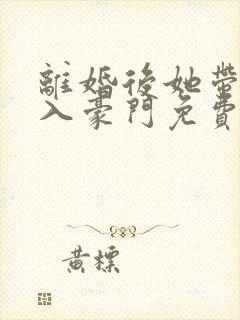 離婚後她帶
入豪門免費
黃標